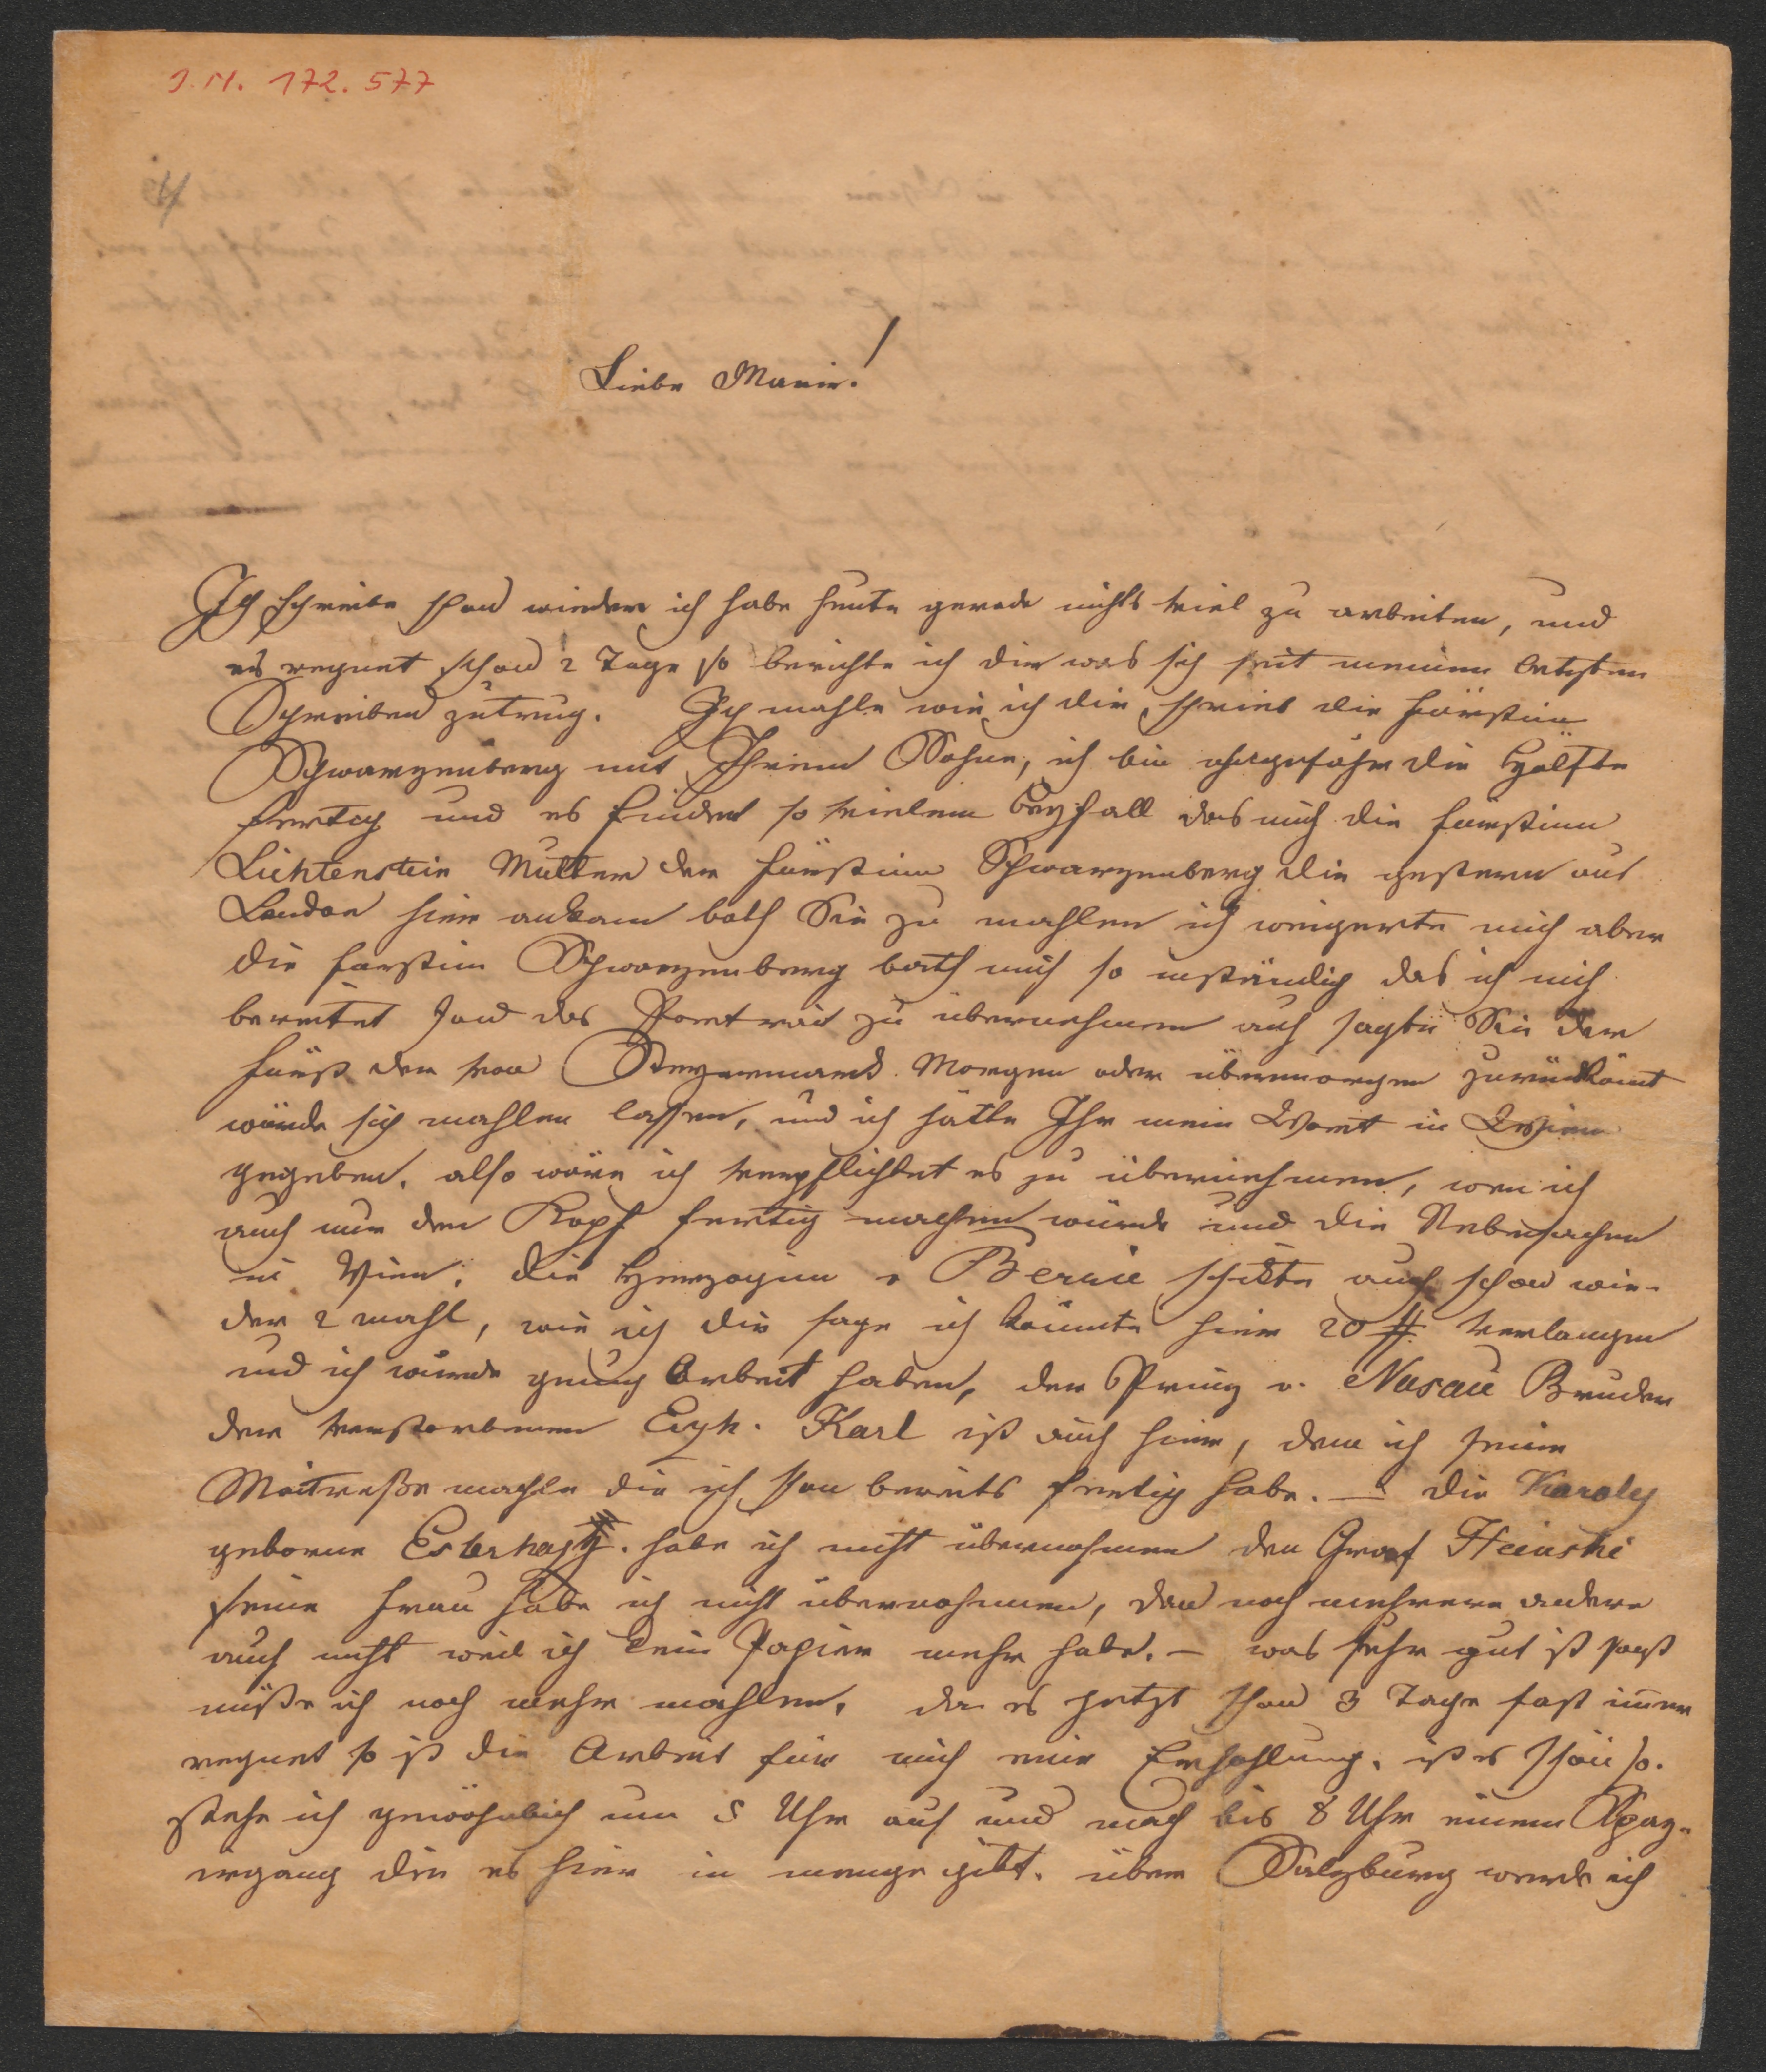 J.N. 172.577
4
Liebe Marie!
Ich schreibe schon wieder, ich habe heute gerade nichts viel zu arbeiten, und
es regnet schon 2 Tage so berichte ich dir was sich seit meinen letzten
Schreiben zutrug. Ich mahle wie ich dir schrieb die Fürstin
Schwarzenberg mit Ihrem Sohne, ich bin ohngefähr die Hälfte
fertig und es findet so vielem Beyfall das mich die Fürstinn
Lichtenstein Mutter der Fürstinn Schwarzenberg die gestern aus
London hier ankam bath Sie zu mahlen ich weigerte mich aber
die Fürstin Schwarzenberg bath mich so inständig das ich mich
bereitet fand das Portrait zu übernehmen auch sagte Sie der
Fürst der von Steyermark Morgen oder übermorgen zurückkömt
würde sich mahlen lassen, und ich hätte Ihr mein Wort in Wien
gegeben, also wäre ich verpflichtet es zu übernehmen, wen ich
auch nur den Kopf fertig machen würde und die Nebensachen
in Wien. die Herzoginn v Berrie schikte auch schon wie-
der 2 mahl, wie ich dir sage ich könnte hier 20 # verlangen
und ich würde genug Arbeit haben, der Prinz v. Nasau Bruder
der verstorbenen Erzh. Karl ist auch hier, dem ich seine
Maitreße mahle die ich schon bereits fertig habe. — die Karoly
geborne Esterhazy. habe ich nicht übernohmen den Graf
seine Frau habe ich nicht übernohmen, den noch mehrere andere
auch nicht weil ich kein Papier mehr habe. — was sehr gut ist sonst
müßte ich noch mehr mahlen, da es jetzt schon 3 Tage fast imer
regnet so ist die Arbeit für mich eine Erhohlung, ist es schön so
stehe ich gewöhnlich um 5 Uhr auf und mach bis 8 Uhr einen Spaz-
irgang die es hier in menge gibt. über Salzburg werde ich